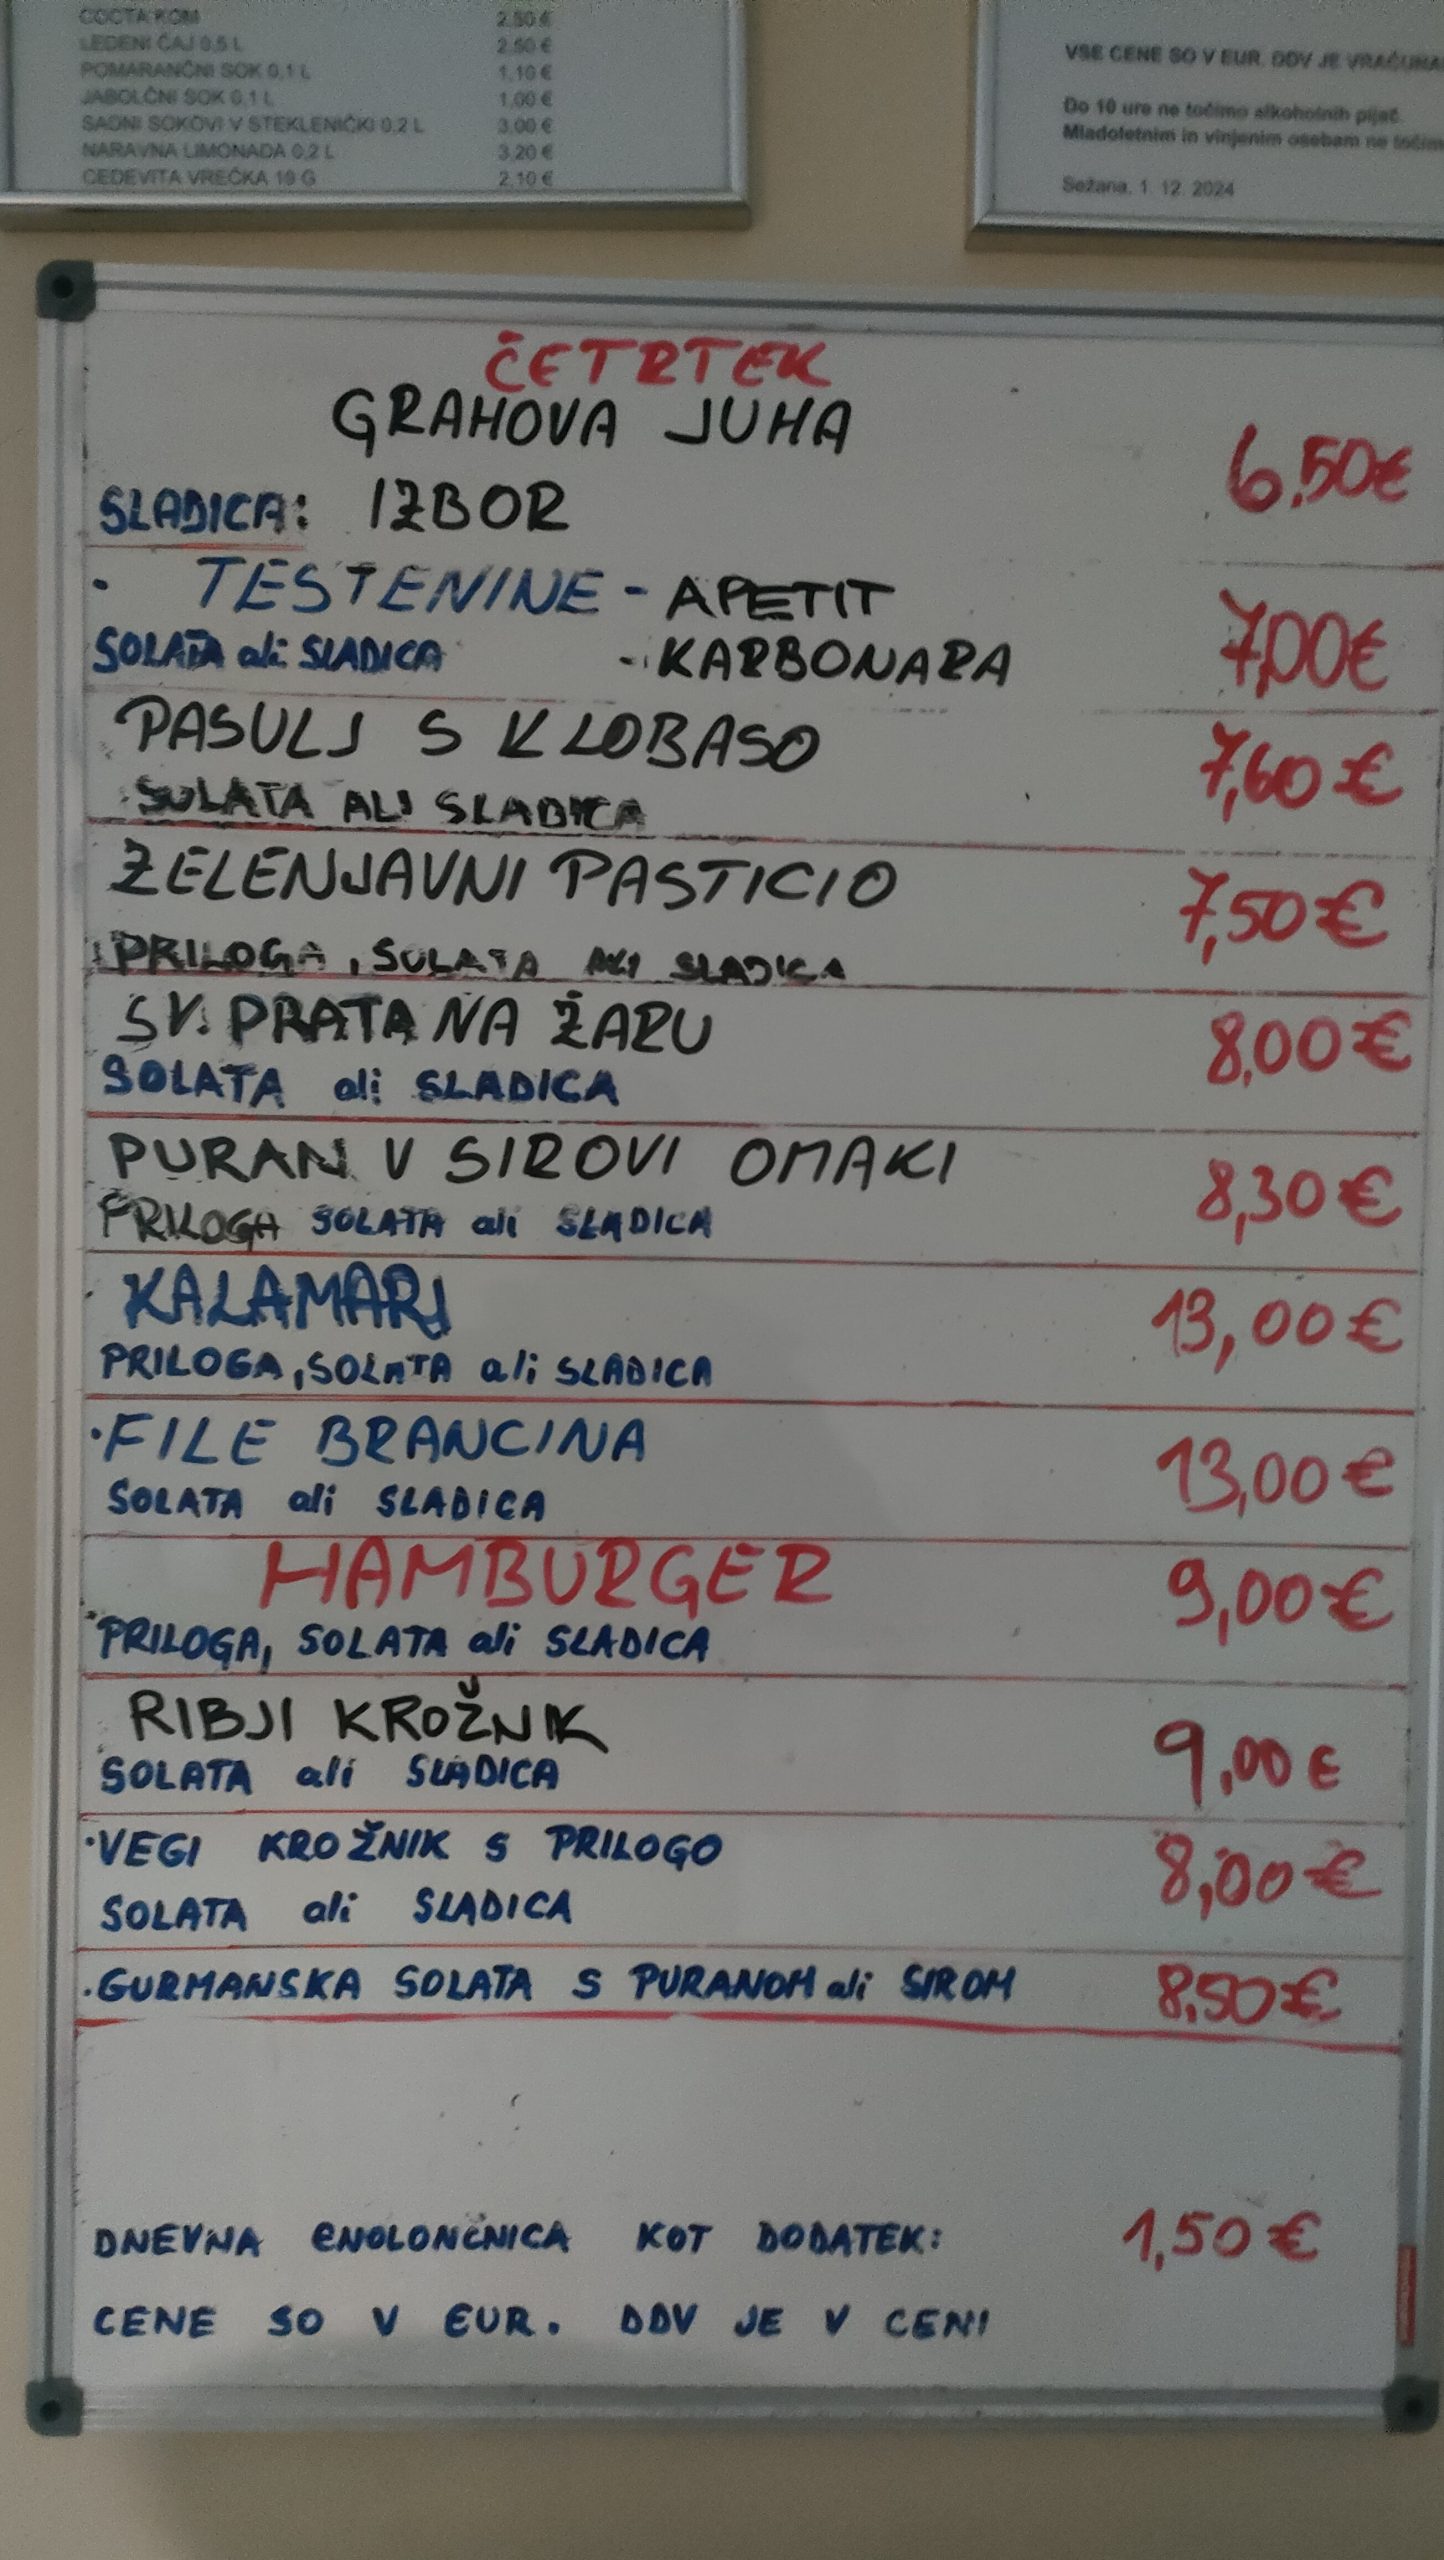 COCTA KOM 2.50 €
LEDENI ČAJ 0,5 L 2.50 €
POMARANČNI SOK 0,1 L 1,10 €
JABOLČNI SOK 0,1 L 1,00 €
SADNI SOKOVI V STEKLENIČKI 0,2 L 3,00 €
NARAVNA LIMONADA 0,2 L 3,20 €
CEDEVITA VREČKA 19 G 2,10 €
VSE CENE SO V EUR. DDV JE
Do 10 ure ne točimo alkoholnih pijač.
Mladoletnim in vinjenim osebam ne
Sežana, 1. 12. 2024
ČETRTEK
GRAHOVA JUHA 6.50€
SLADICA: IZBOR
· TESTENINE - APETIT 7,00€
SOLATA ali SLADICA - KARBONARA
PASULJ S KLOBASO 7,60 €
SOLATA ALI SLADICA
ZELENJAVNI PASTICIO 7,50€
PRILOGA, SOLATA ALI SLADICA
SV. PRATA NA ŽARU 8,00€
SOLATA ali SLADICA
PURAN V SIROVI OMAKI 8,30€
PRILOGA SOLATA ali SLADICA
KALAMARI 13,00€
PRILOGA, SOLATA ali SLADICA
·FILE BRANCINA 13,00€
SOLATA ali SLADICA
HAMBURGER 9,00€
PRILOGA, SOLATA ali SLADICA
RIBJI KROŽNIK 9,00€
SOLATA ali SLADICA
·VEGI KROŽNIK S PRILOGO 8,00€
SOLATA ali SLADICA
·GURMANSKA SOLATA S PURANOM ali SIROM 8,50€
DNEVNA ENOLONČNICA KOT DODATEK: 1,50€
CENE SO V EUR. DDV JE V CENI